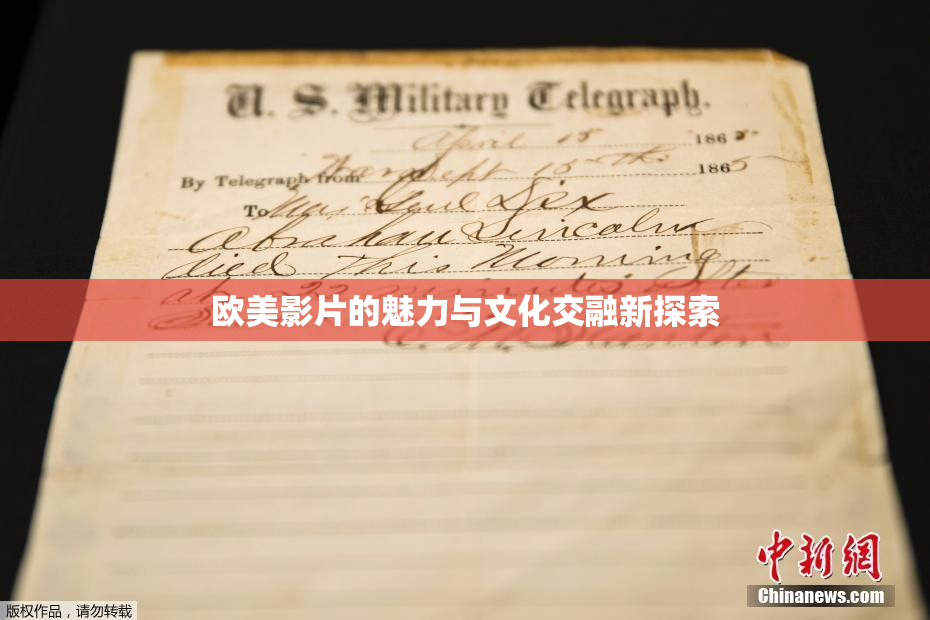 U. S. Military Telegraph.
April 15 1865
By Telegraph from War Dept 15th 1865
To Maj Genl Dix
Abraham Lincoln
died This Morning
at 22 minutes after
欧美影片的魅力与文化交融新探索
E. M. Stanton
中新网
Chinanews.com
版权作品，请勿转载